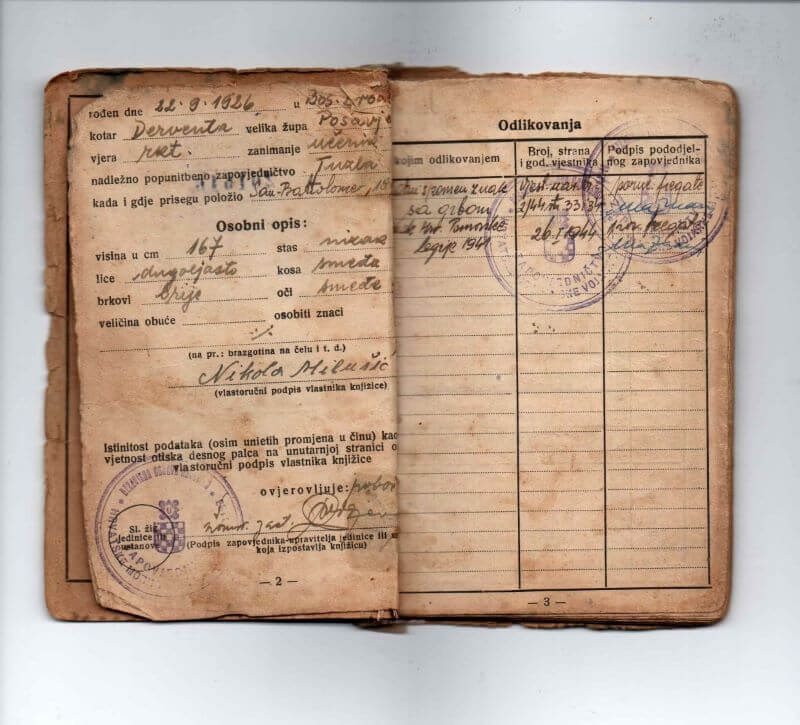 rođen dne 22.9.1926 u Bos. Brod
kotar Derventa velika župa Posavje
vjera rkt. zanimanje učenik
nadležno popunitbeno zapovjedničtvo Tuzla
kada i gdje prisegu položio San-Bartolomeo,
Osobni opis:
visina u cm 167 stas nizak
lice dugoljasto kosa smeđa
brkovi brije oči smeđe
veličina obuće osobiti znaci
(na pr.: brazgotina na čelu i t. d.)
Nikola Milušić
(vlastoručni podpis vlastnika knjižice)
Istinitost podataka (osim unietih promjena u činu) kao
vjetnost otiska desnog palca na unutarnjoj stranici o
vlastoručni podpis vlastnika knjižice
ovjerovljuje:
Sl. žig
jedinice ili
ustanove
(Podpis zapovjednika-upravitelja jedinice ili u
koja izpostavlja knjižicu)
— 2 —
Odlikovanja
kojim odlikovanjem
Broj, strana
i god. vjestnika
Podpis pododjel-
nog zapovjednika
spomen znak
sa grbom
legije 1941
2/44 33/34
26.I.1944
poruč. fregate
por. fregate
— 3 —